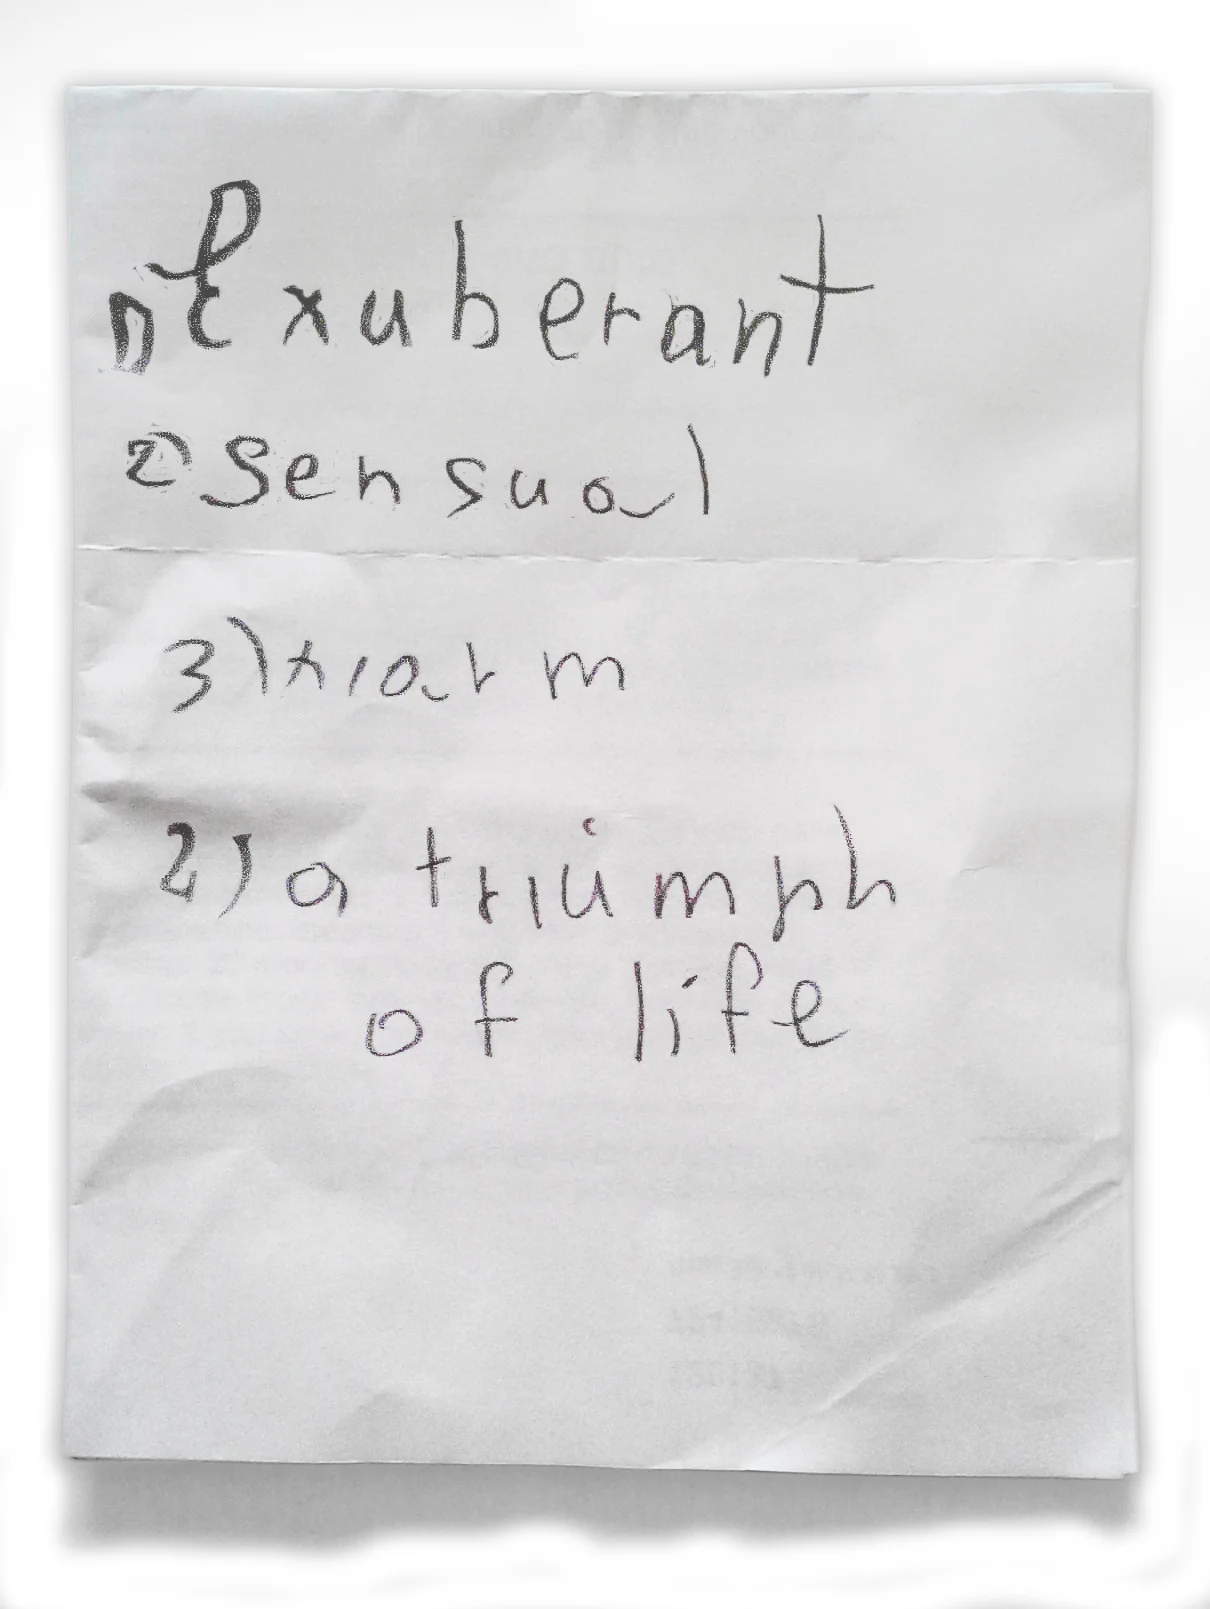 1) Exuberant
2) Sensual
3)
2) a triumph
of life